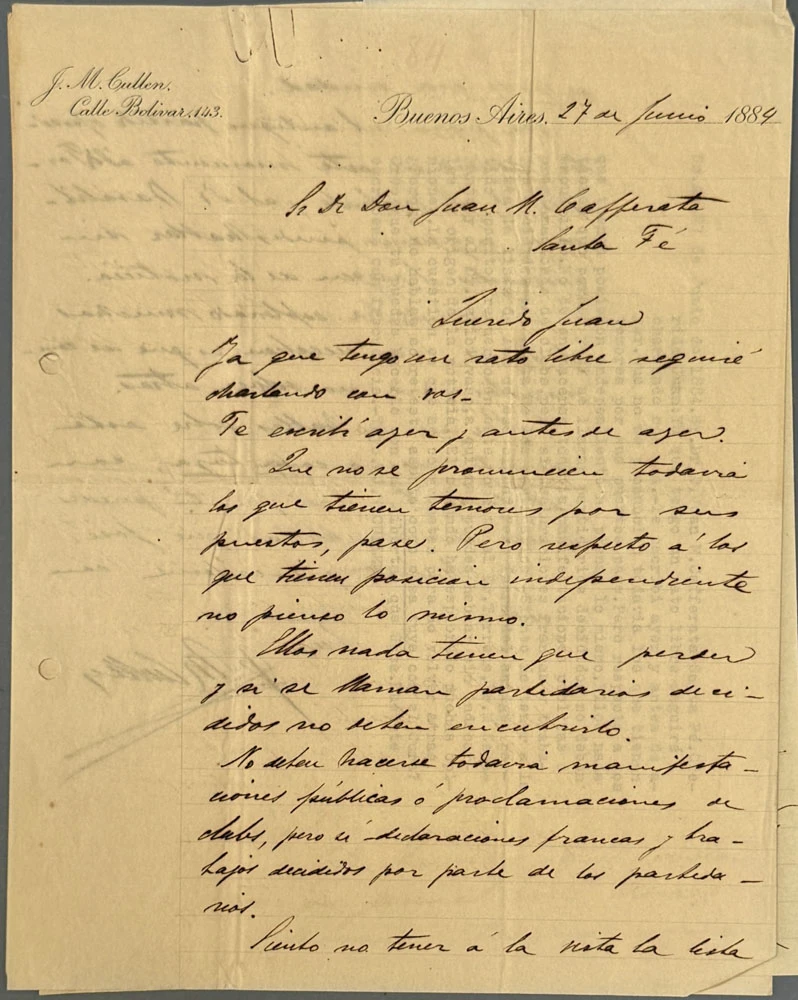 J. M. Cullen.
Calle Bolivar, 143.
Buenos Aires, 27 de Junio 1889
Sr Dr Don Juan M. Cafferata
Santa Fé
Querido Juan
Ya que tengo un rato libre seguiré
charlando con vos_
Te escribí ayer y antes de ayer.
Que no se pronuncien todavia
los que tienen temores por sus
puestos, pase. Pero respecto á los
que tienen posicion independiente
no pienso lo mismo.
Ellos nada tienen que perder
y si se llaman partidarios deci-
didos no deben encubrirlo.
No deben hacerse todavia manifesta-
ciones públicas ó proclamaciones de
clubs, pero si declaraciones francas y tra-
bajos decididos por parte de los partida-
rios.
Siento no tener á la vista la lista